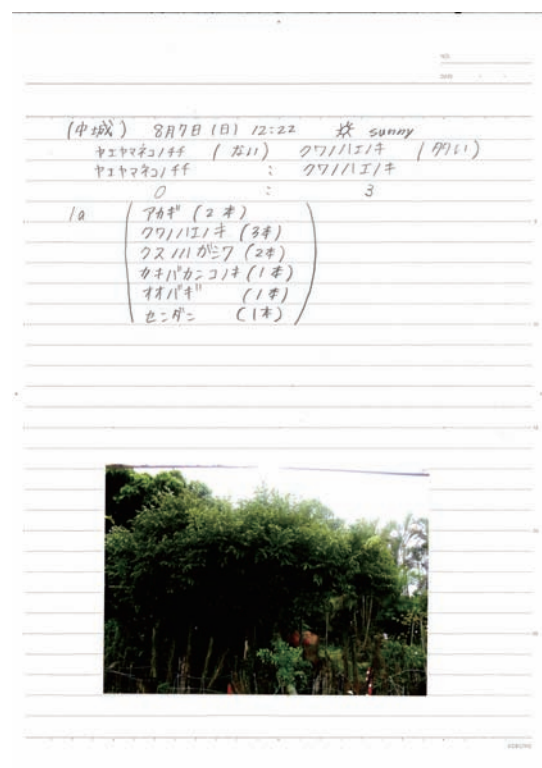 NO.
DATE
(中城) 8月7日(日) 12:22 sunny
ヤエヤマネコノチチ (ない) クワノハエノキ (多い)
ヤエヤマネコノチチ : クワノハエノキ
0 : 3
1a アカギ (2本)
クワノハエノキ (3本)
クスノハガシワ (2本)
カキバカンコノキ (1本)
オオバギ (1本)
センダン (1本)
KOKUYO